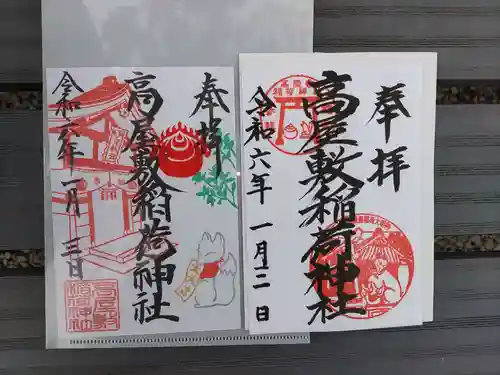 奉拝
高屋敷稲荷神社
令和六年一月二日
奉拝
高屋敷稲荷神社
令和六年一月三日
高屋敷
稲荷神社